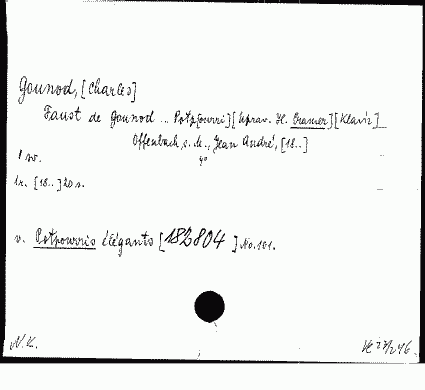 Gounod, [Charles]
Faust de Gounod ... Potp[ourri] [Uprav. H. Cramer] [Klavír]
Offenbach s. M., Jean André, [18..]
4°
1 sv.
1r. [18..] 20 s.
v. Potpourris élégants [182804] No. 101.
N.K.